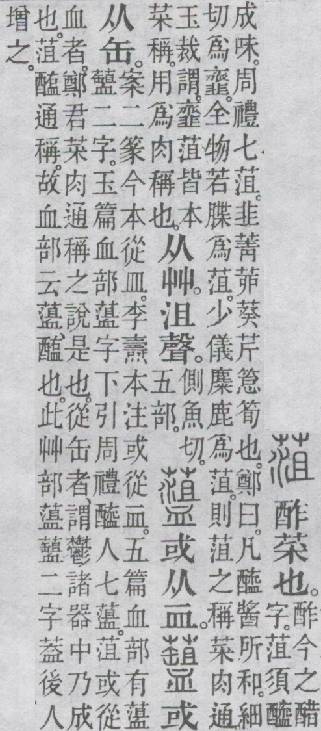 酢菜也。酢今之醋
字。菹須醯
成味。周禮七菹。韭菁茆葵芹箈筍也。鄭曰。凡醯醬所和。細
切爲韲。全物若牒爲菹。少儀麋鹿爲菹。則菹之稱菜肉通。
玉裁謂。韲菹皆本
菜稱。用爲肉稱也。从艸。沮聲。側魚切。
五部。或从血。或
从缶。案二篆今本從皿。李燾本注或從血。五篇血部有
二字。玉篇血部字下引周禮醢人七。菹或從
血者。鄭君菜肉通稱之說是也。從缶者。謂鬱諸器中乃成
也。菹醢通稱。故血部云。醢也。此艸部二字蓋後人
增之。